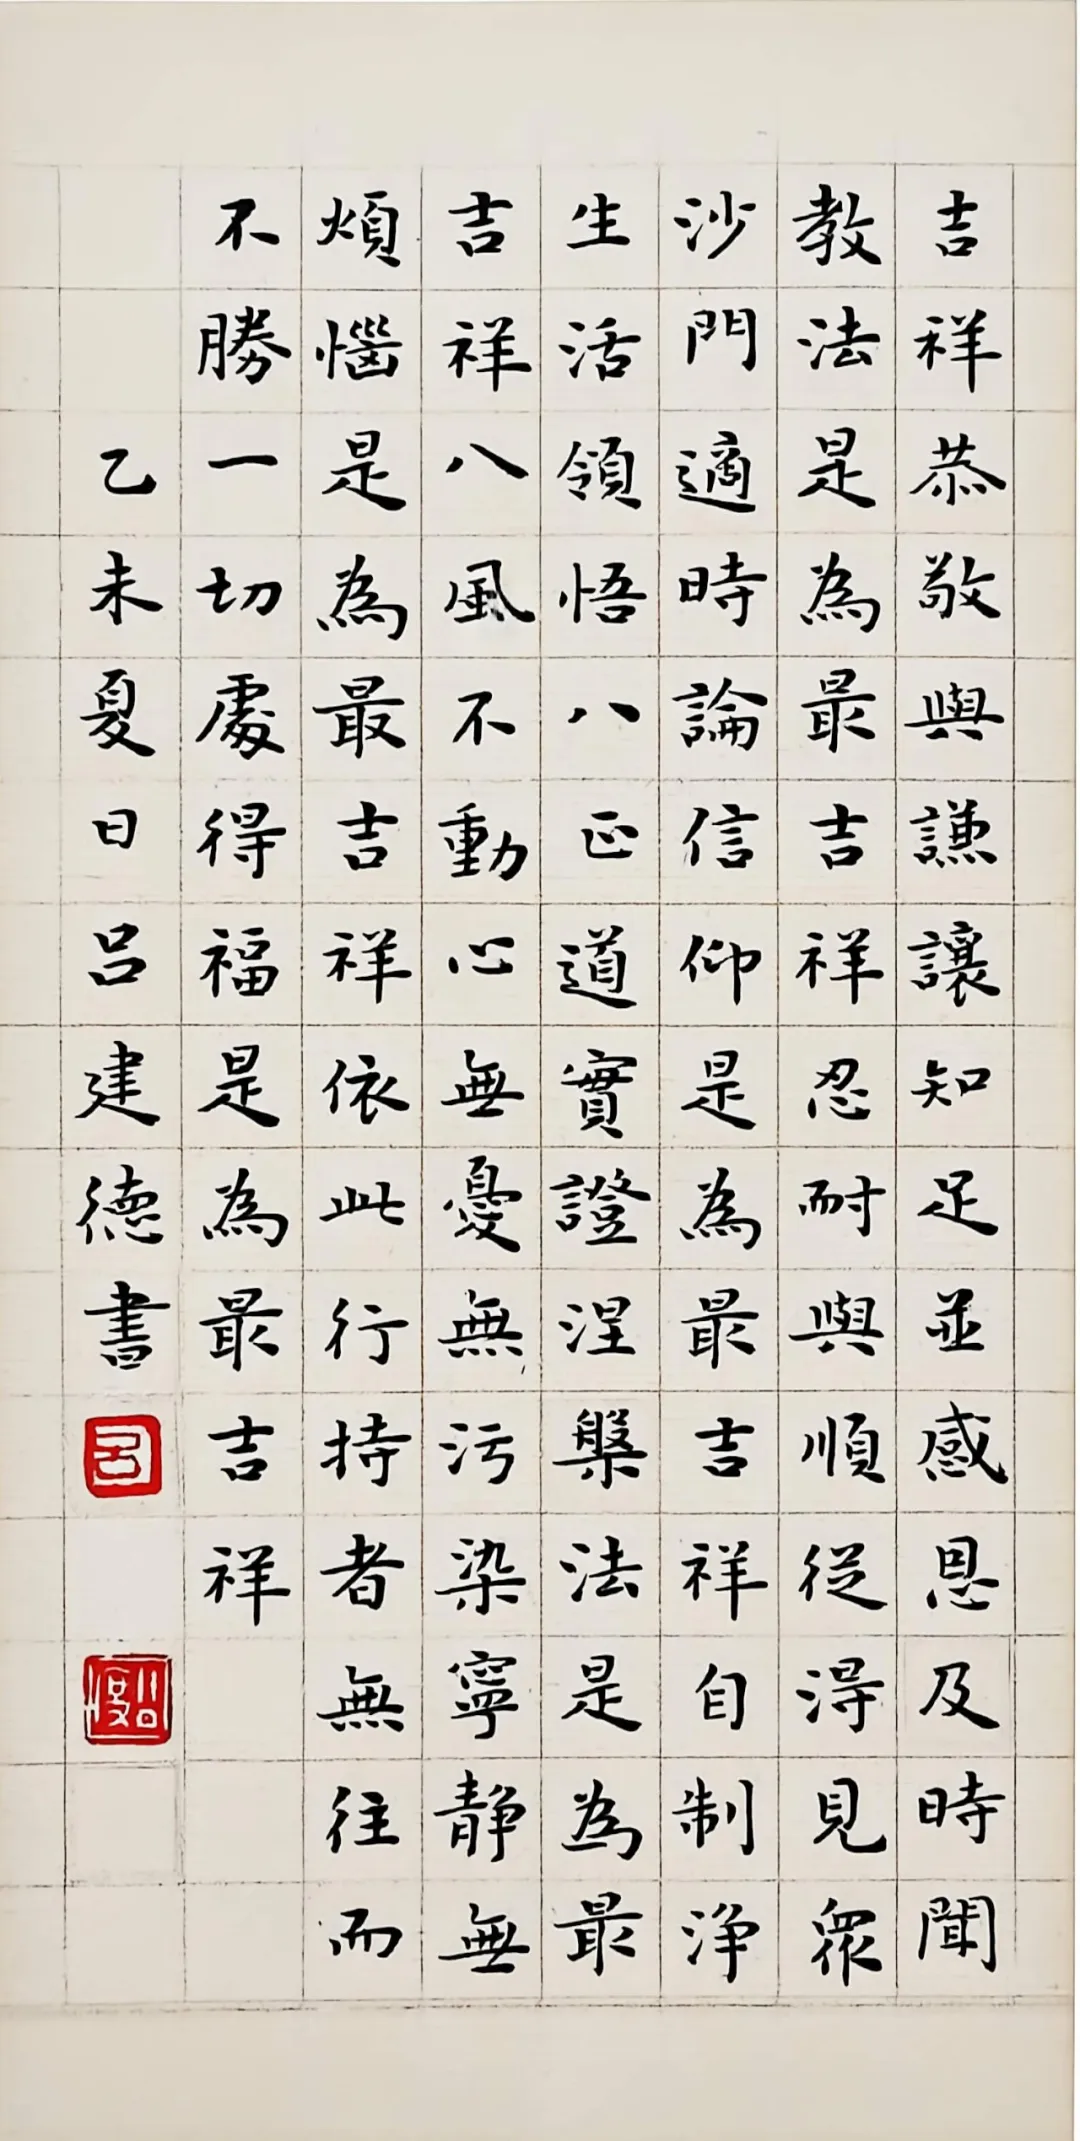 吉祥恭敬與謙讓知足並感恩及時聞
教法是為最吉祥忍耐與順從得見眾
沙門適時論信仰是為最吉祥自制淨
生活領悟八正道實證涅槃法是為最
吉祥八風不動心無憂無污染寧靜無
煩惱是為最吉祥依此行持者無往而
不勝一切處得福是為最吉祥
乙未夏日呂建德書